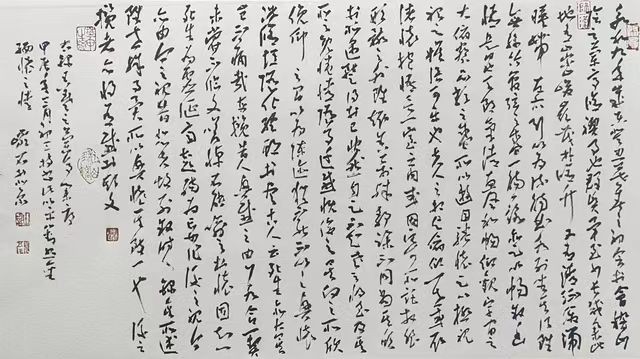 永和九年歲在癸丑暮春之初會于會稽山
陰之蘭亭修禊事也群賢畢至少長咸集此
地有崇山峻嶺茂林修竹又有清流激湍
映帶左右引以為流觴曲水列坐其次雖
無絲竹管弦之盛一觴一詠亦足以暢敘幽
情是日也天朗氣清惠風和暢仰觀宇宙之
大俯察品類之盛所以遊目騁懷足以極視
聽之娛信可樂也夫人之相與俯仰一世或取
諸懷抱悟言一室之內或因寄所託放浪
形骸之外雖趣舍萬殊靜躁不同當其欣
於所遇暫得於己快然自足不知老之將至及其
所之既倦情隨事遷感慨係之矣向之所欣
俛仰之間以為陳迹猶不能不以之興懷
況修短隨化終期於盡古人云死生亦大矣
豈不痛哉每攬昔人興感之由若合一契
未嘗不臨文嗟悼不能喻之於懷固知一
死生為虛誕齊彭殤為妄作後之視今
亦由今之視昔悲夫故列敘時人錄其所述
雖世殊事異所以興懷其致一也後之
攬者亦將有感於斯文